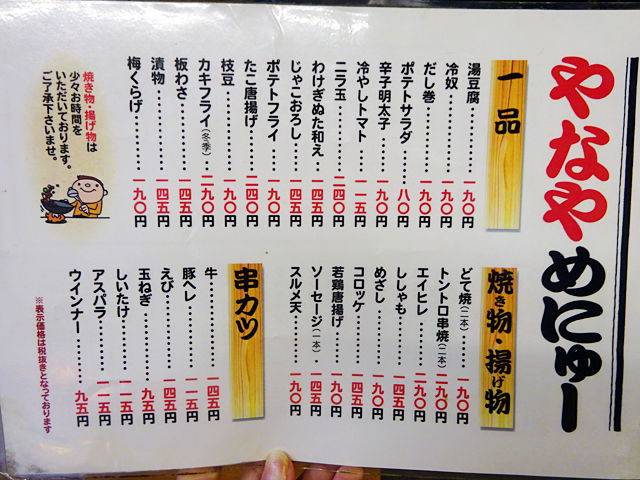 やなやめにゅー
一品
湯豆腐・・・・・・・・・一九〇円
冷奴・・・・・・・・・・一九〇円
だし巻・・・・・・・・・一九〇円
ポテトサラダ・・・一八〇円
辛子明太子・・・・一九〇円
冷やしトマト・・・一一五円
ニラ玉・・・・・・・・・二四〇円
わけぎぬた和え・・一四五円
じゃこおろし・・・一四五円
ポテトフライ・・・一九〇円
たこ唐揚げ・・・・二四〇円
枝豆・・・・・・・・・・一九〇円
カキフライ(冬季)・・二九〇円
板わさ・・・・・・・・・一四五円
漬物・・・・・・・・・・一四五円
梅くらげ・・・・・・・一九〇円
焼き物・揚げ物は
少々お時間を
いただいております。
ご了承下さいませ。
焼き物・揚げ物
どて焼(二本)・・・一九〇円
トントロ串焼(二本)二九〇円
エイヒレ・・・・・・二九〇円
ししゃも・・・・・・一四五円
めざし・・・・・・・・一九〇円
コロッケ・・・・・・一四五円
若鶏唐揚げ・・・・一九〇円
ソーセージ(一本)・・一四五円
スルメ天・・・・・・一九〇円
串カツ
牛・・・・・・・・・・・一四五円
豚ヘレ・・・・・・・・一四五円
えび・・・・・・・・・・一四五円
玉ねぎ・・・・・・・・・九五円
しいたけ・・・・・・一一五円
アスパラ・・・・・・一一五円
ウインナー・・・・・・九五円
※表示価格は税抜きとなっております